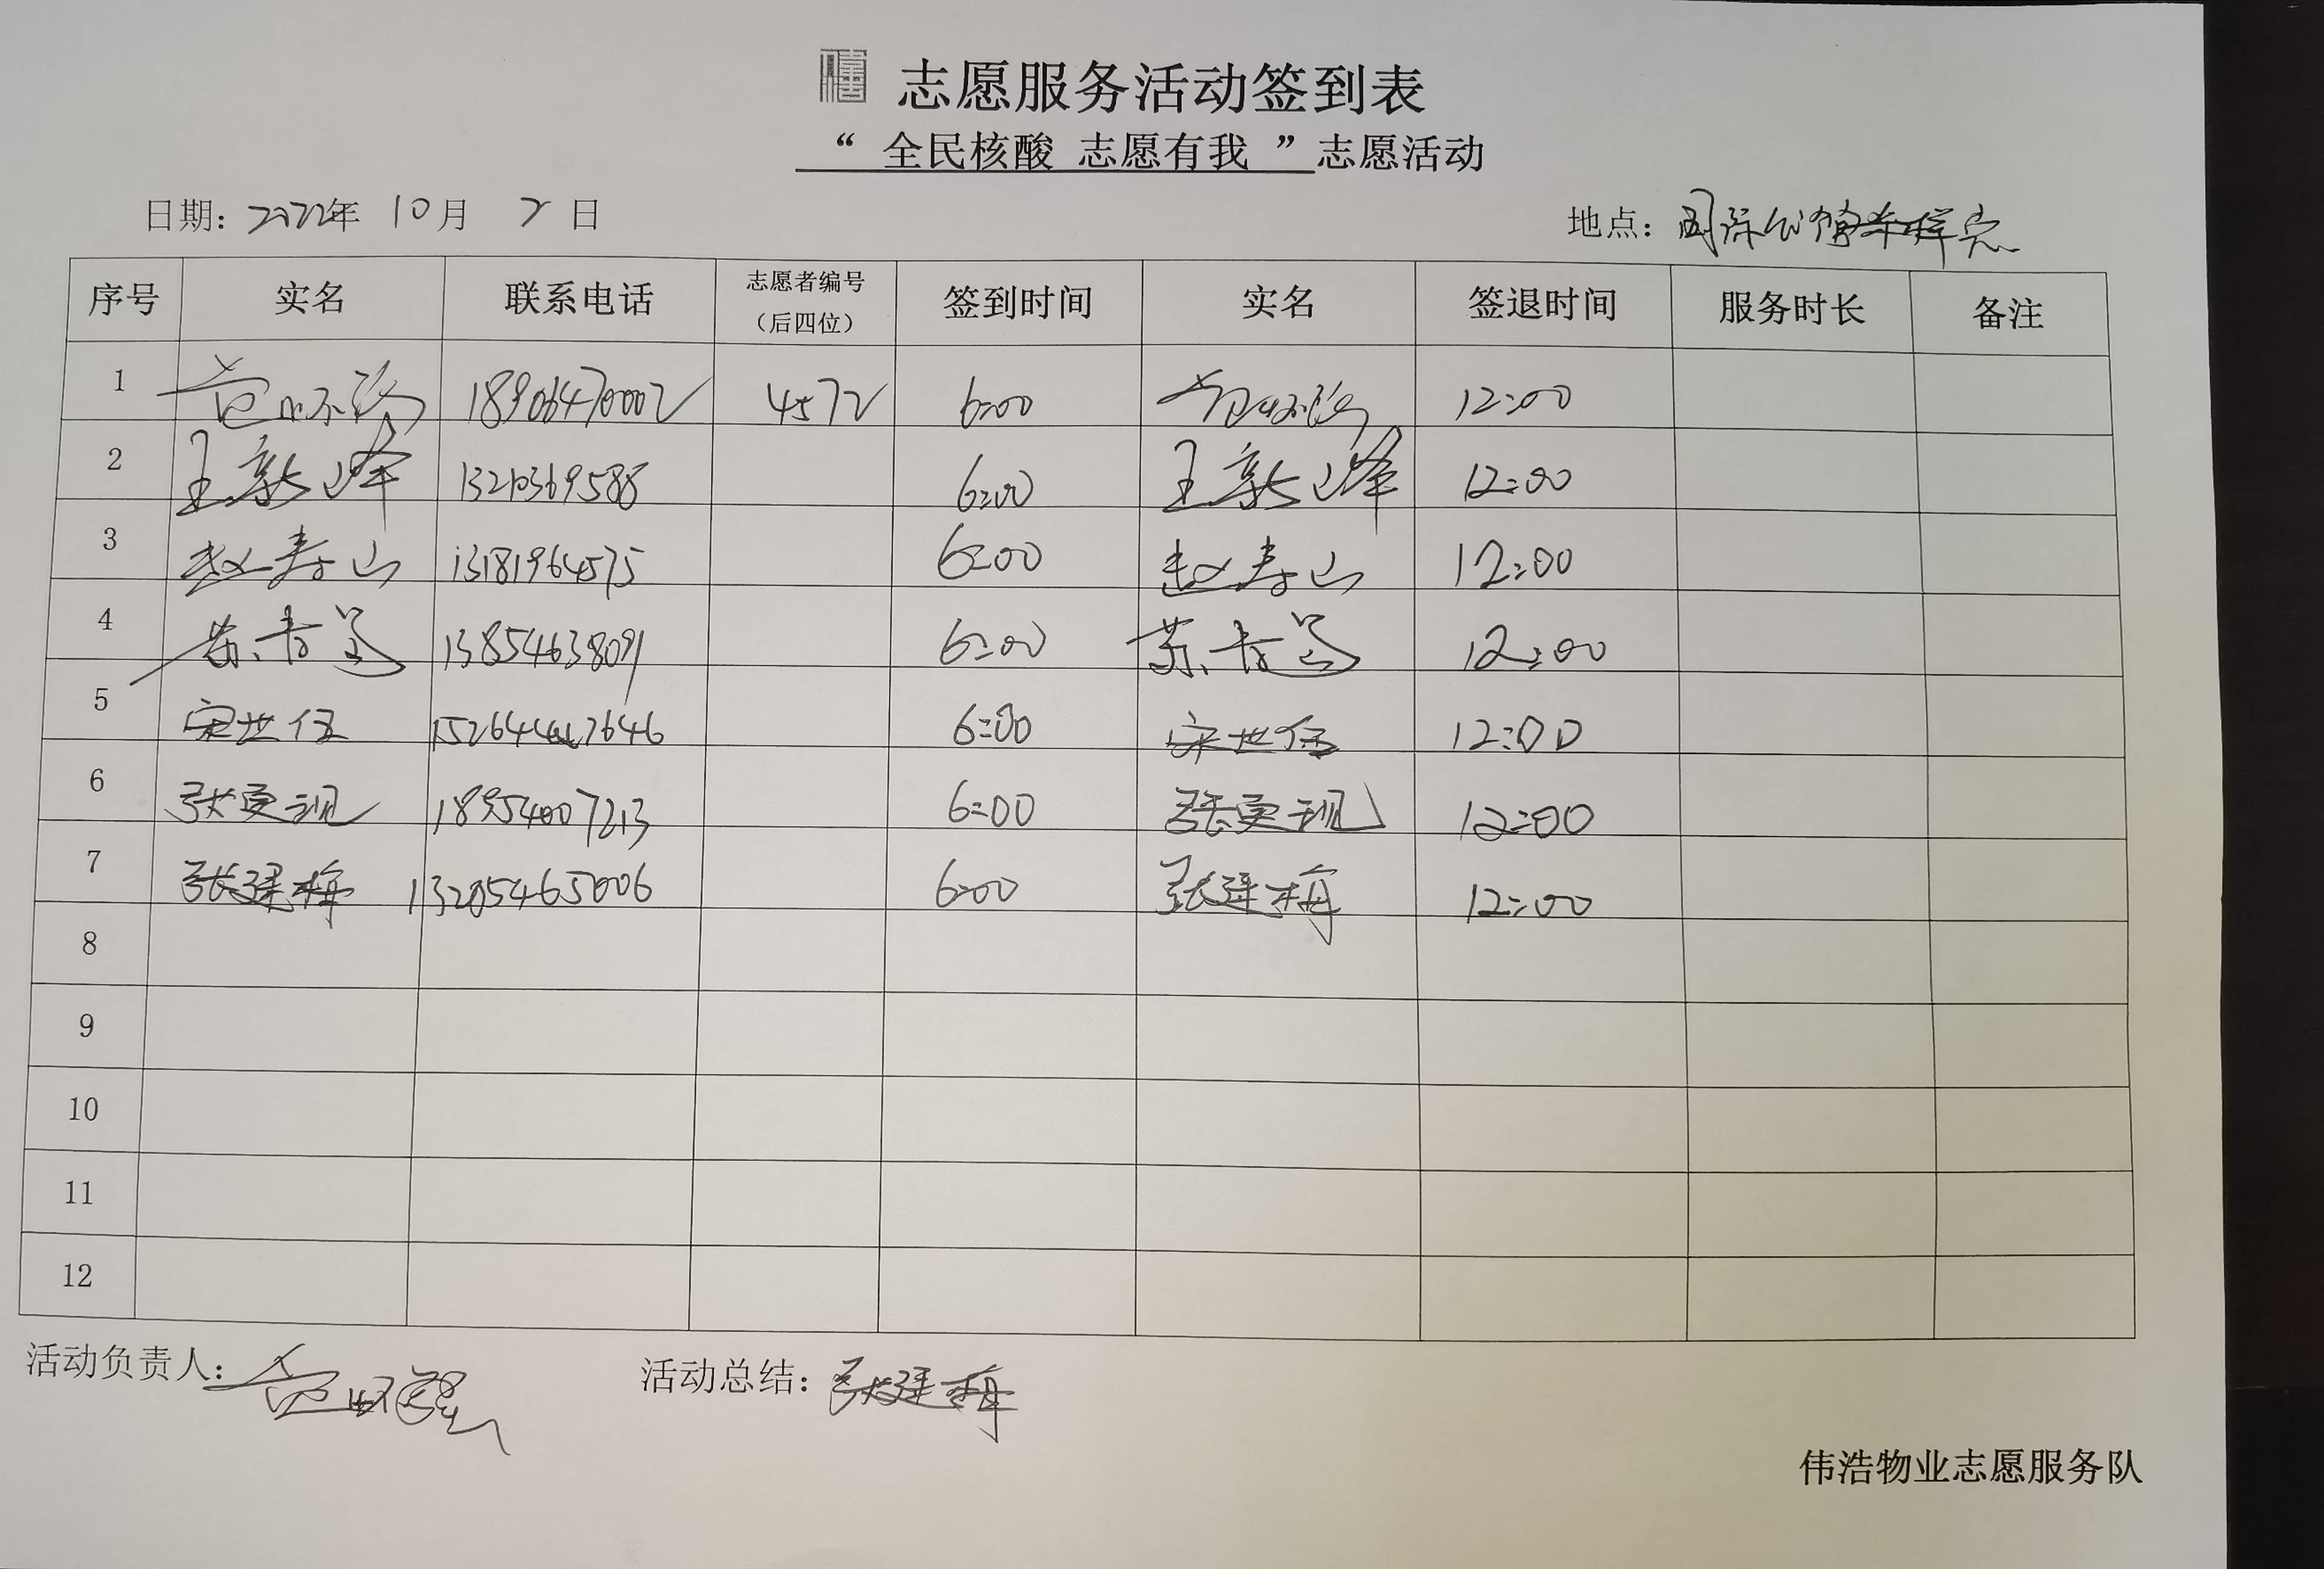 志愿服务活动签到表
“ 全民核酸 志愿有我 ”志愿活动
日期: 2022年 10月 2日 地点: 国际公馆采样点
序号 实名 联系电话 志愿者编号（后四位） 签到时间 实名 签退时间 服务时长 备注
1 18906470002 4572 6:00 12:00
2 王新峰 6:00 王新峰 12:00
3 赵寿山 13181964575 6:00 赵寿山 12:00
4 苏 13854638091 6:00 苏 12:00
5 宋世伍 6:00 宋世伍 12:00
6 张更现 18954007213 6:00 张更现 12:00
7 张建梅 13205465006 6:00 张建梅 12:00
8
9
10
11
12
活动负责人: 活动总结: 张建梅
伟浩物业志愿服务队